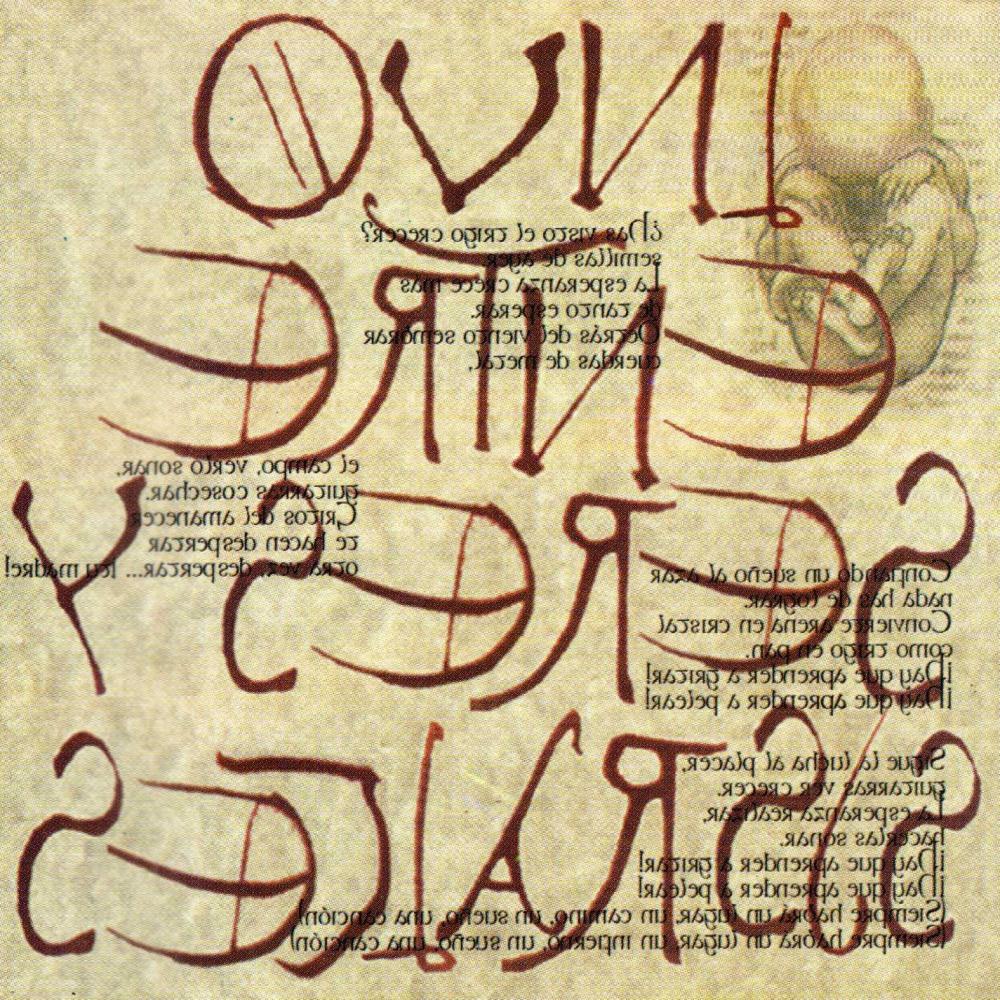 INVO
ENTRE
SERES Y
¿Has visto el trigo crecer?
semillas de ayer.
La esperanza crece más
de tanto esperar.
Detrás del viento sembrar
cuerdas de metal,
el campo, verlo sonar,
guitarras cosechar.
Gritos del amanecer
te hacen despertar
otra vez, despertar... madre!
Confiando un sueño al azar
nada has de lograr.
Convierte arena en cristal
como trigo en pan.
¡Hay que aprender a gritar!
¡Hay que aprender a pelear!
Sigue la lucha al placer,
guitarras ver crecer.
La esperanza realizar,
hacerlas sonar.
¡Hay que aprender a gritar!
¡Hay que aprender a pelear!
(Siempre habrá un lugar, un camino, un sueño, una canción)
(Siempre habrá un lugar, un infierno, un sueño, una canción)